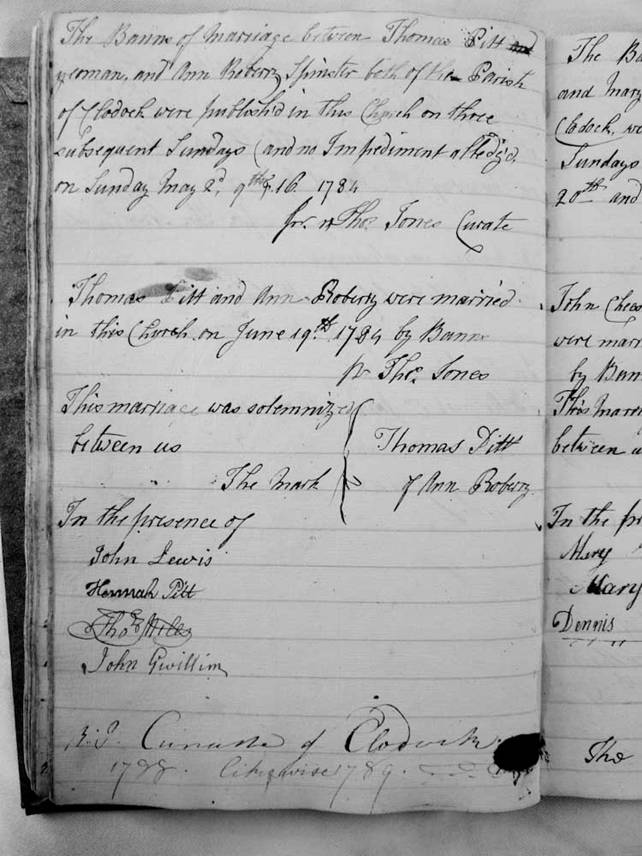 The Banns of Marriage between Thomas Pitt
yeoman, and Ann Roberry Spinster both of the Parish
of Clodock were publish'd in this Church on three
subsequent Sundays (and no Impediment alledg'd
on Sunday May 2d, 9th, & 16 1784
pr Thos. Jones Curate
Thomas Pitt and Ann Roberry were married
in this Church on June 19th 1784 by Banns
pr Thos. Jones
This marriage was solemnize
between us
Thomas Pitt
The Mark
of Ann Roberry
In the presence of
John Lewis
Hannah Pitt
Thos
John Gwillim
of Clodock
1788. Likewise 1789.
The Ba
and Mary
Clodock, we
Sundays
20th and
John Chees
were marr
by Ban
This Marri
between u
In the pr
Mary
Mary
Dennis
The